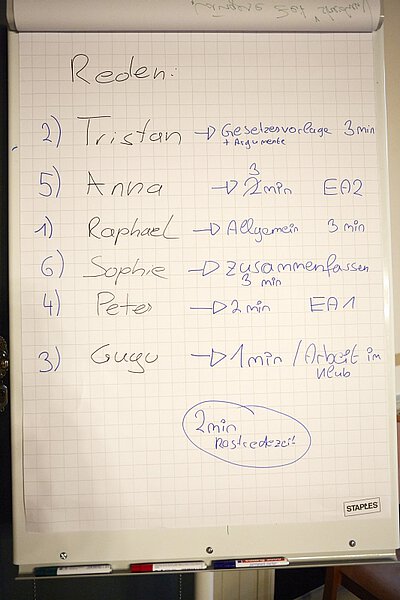 Reden:
2) Tristan → Gesetzesvorlage 3 min
+ Argumente
3
5) Anna → 2 min EA2
1) Raphael → Allgemein 3 min
6) Sophie → zusammenfassen
3 min
4) Peter → 2 min EA1
3) Gugu → 1 min / Arbeit im
Klub
2 min
Restredezeit
STAPLES